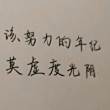 该努力的年纪
莫虚度光阴